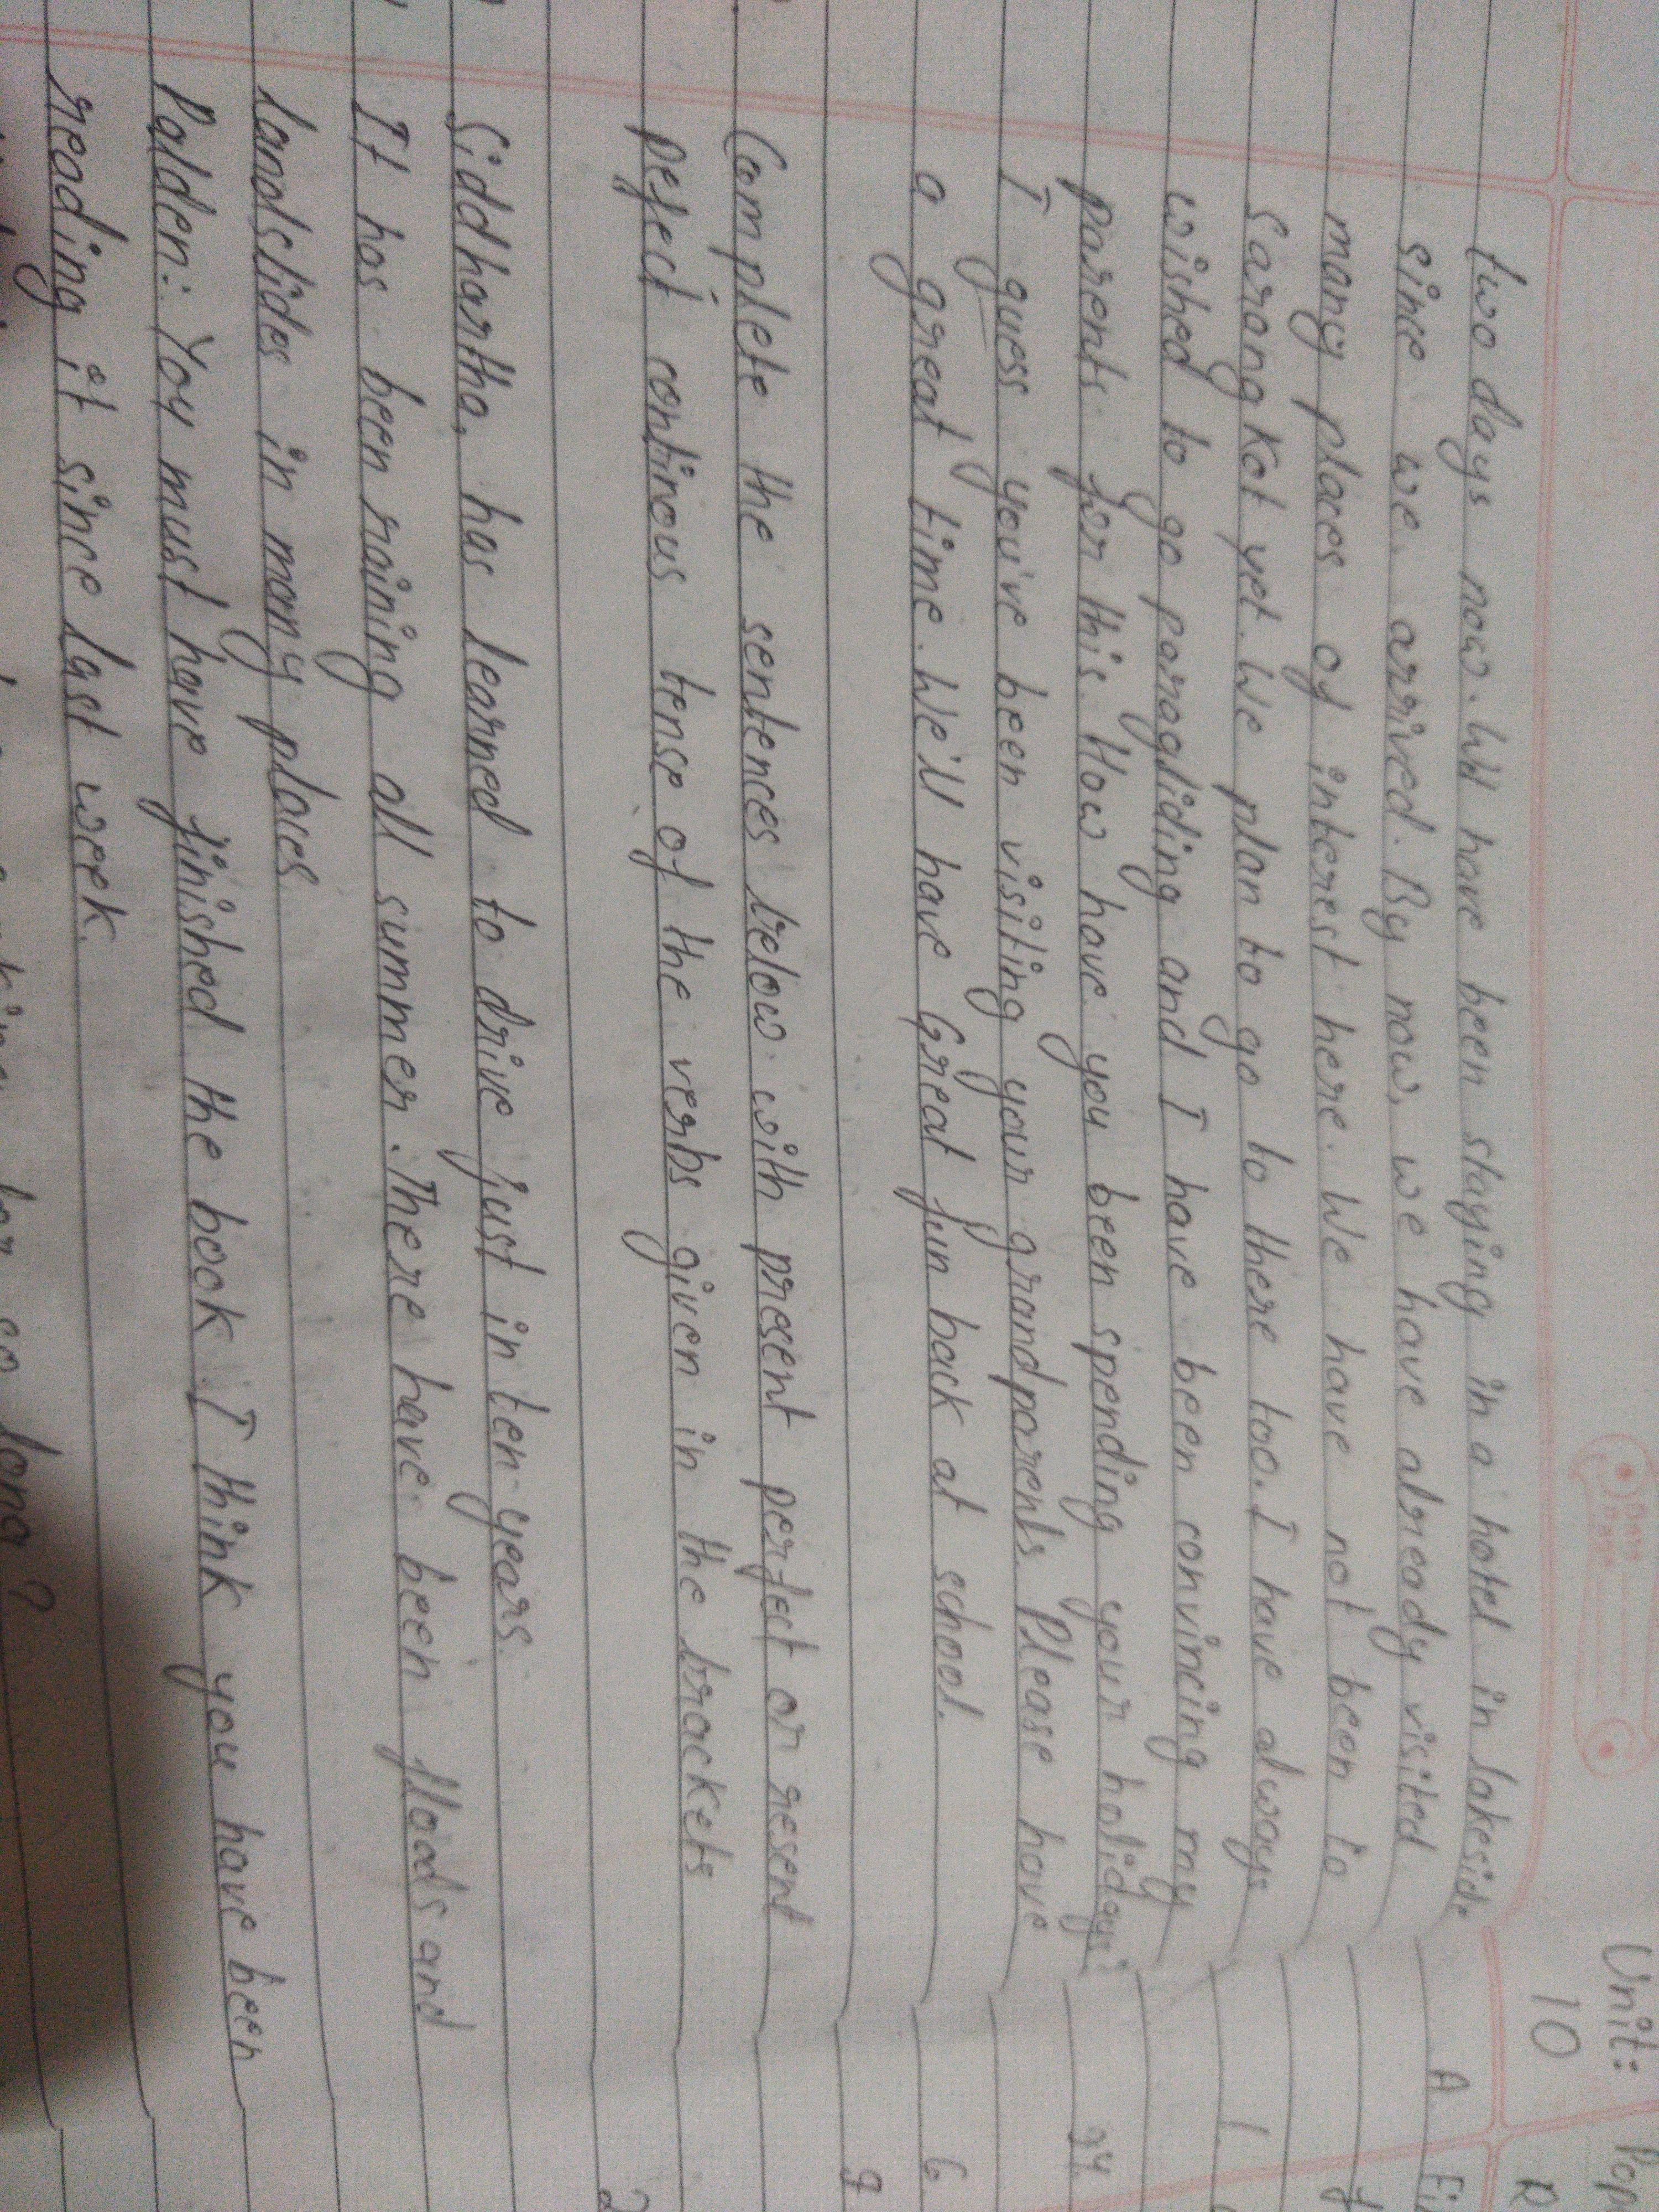 two days now. We have been staying in a hotel in lakeside
since we arrived. By now, we have already visited
many places of interest here. We have not been to
Sarangkot yet. We plan to go to there too. I have always
wished to go paragliding and I have been convincing my
parents for this. How have you been spending your holidays?
I guess you've been visiting your grandparents. Please have
a great time. We'll have Great fun back at school.
Complete the sentences below with present perfect or resent
pefect continous tense of the verbs given in the brackets
Siddhartha, has learned to drive just in ten years.
It has been raining all summer. There have been floods and
landslides in many places
Palden: You must have finished the book I think you have been
reading it since last week.
long?
Unit:
10
Pop
A
1
94
6
9
2